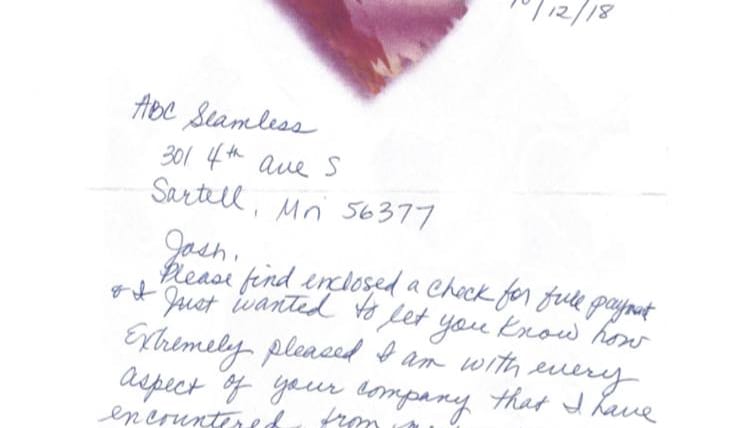 10/12/18
ABC Seamless
301 4th Ave S
Sartell, Mn 56377
Josh,
Please find enclosed a check for full paymt
& I Just wanted to let you Know how
Extremely pleased I am with every
aspect of your company that I have
encountered from